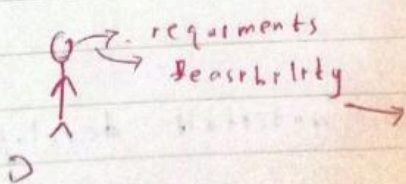 requirments
feasibility